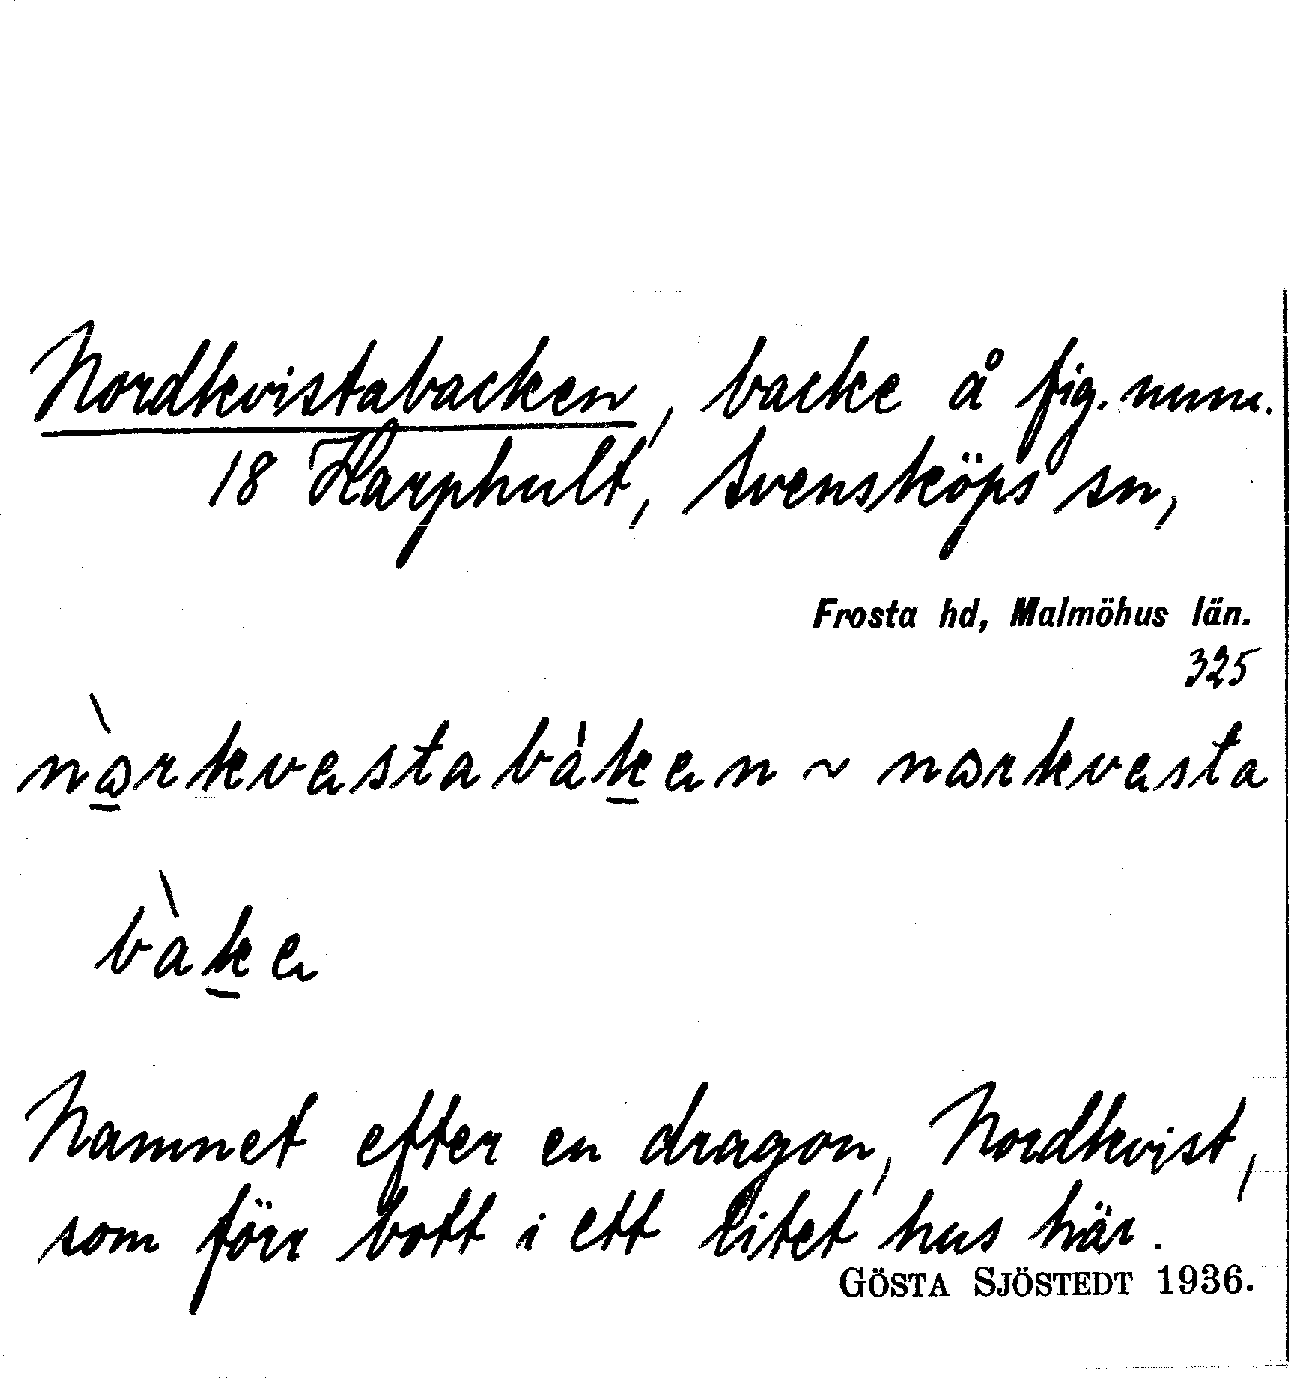 Nordkvistabacken, backe å fig. num.
18 Karphult, Svensköps sn,
Frosta hd, Malmöhus län.
325
nàrkvestabàken ~ norkvesta
bàke
Namnet efter en dragon, Nordkvist,
som förr bott i ett litet hus här.
GÖSTA SJÖSTEDT 1936.